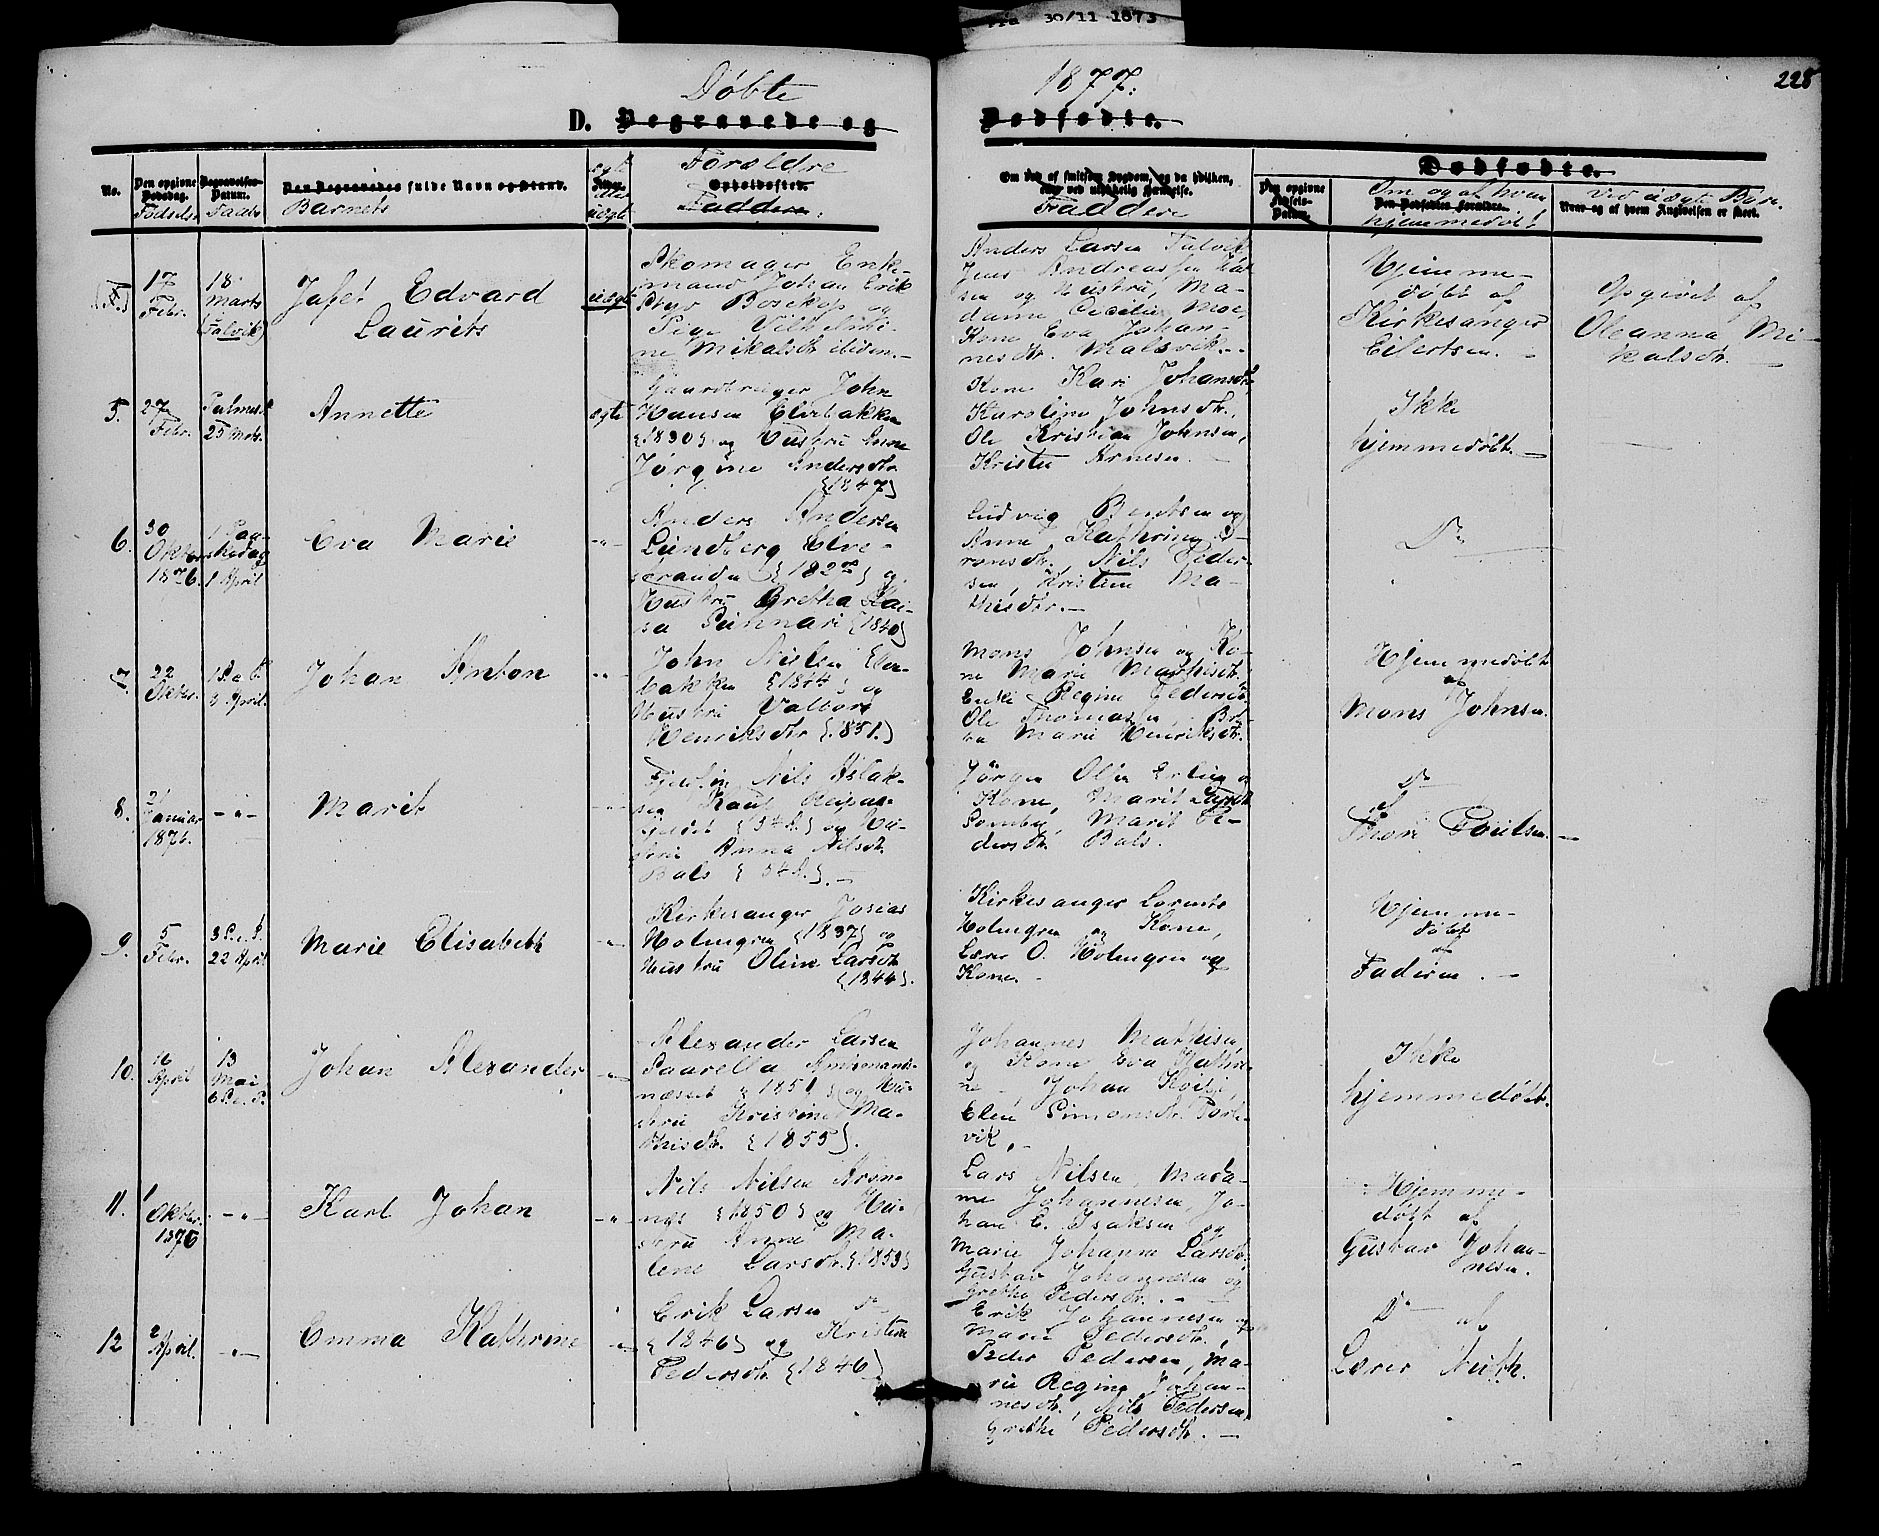 Fra 30/11 1873
228
Døbte 1877.
D. Begravede og Dødfødte.
No.
Den opgivne Dødsdag.
Fødsels
Begravelses-Datum.
Daabs
Den Begravedes fulde Navn og Stand.
Barnets
ægte
eller
uægte
Forældre
Opholdssted.
Faddere.
Om Død af smitsom Sygdom, og da hvilken,
eller ved ulykkelig Hændelse.
Faddere
Dødfødte.
Den opgivne
Fødsels-
Datum.
Om og af hvem
Den Dødfødtes Forældre.
hjemmedøbt
Ved uægte Børn.
Naar og af hvem Angivelsen er skeet.
17
Febr.
18
Marts
(Talvik)
Jafet Edvard
Laurits
uægte
Skomager Enke-
mand Johan Erik
Bosekop og
Pige Vilhelmi-
ne Mikalsdtr ibiden.-
Anders Larsen Talvik
Jens Andreassen
sen og Hustru, Ma-
dame Cecilie Moe,
Kone Eva Johan-
nesdtr. Malsvik.-
Hjemme-
døbt af
Kirkesanger
Eilertsen.
Opgivet af
Oleanna Mi-
kalsdtr.
5.
27
Febr.
Palmes.
25 Mrts.
Annette
ægte
Gaardbruger John
Hansen Elvebakken
{1830} og Hustru Anne
Jørgine Andersdtr
{1847}
Kone Kari Johansdtr,
Karoline Johnsdtr.,
Ole Kristian Johnsen,
Kristen Arnesen.
Ikke
hjemmedøbt.
6.
30
Oktober
1876.
1 Paa-
skedag
1 April
Eva Marie
-"-
Anders Andersen
Lundberg Elve-
stranden {1827} og
Hustru Gretha Kai-
sa Pinnari {1840}
Ludvig Bentsen og
Anne Kathrine I-
versdtr. Nils Peder-
sen, Kristine Ma-
thisdtr.-
Do
7.
22
Oktbr.
1 S. e. P.
8 April.
Johan Anton
-"-
John Nielsen Elve-
bakken {1844} og
Hustru Valborg
Henriksdtr {1851.}
Mons Johnsen og Ko-
ne Marie Mathisdtr.
Enke Regine Pedersdtr.
Ole Thomassen, Be-
ta Marie Henriksdtr.
Hjemmedøbt
af
Mons Johnsen.
8.
21
Januar
1876.
-"-
Marit
-"-
Fjeldfin Nils Aslak-
sen
{34 A.} og Hu-
stru Anna Nilsdtr
Bals {34 A.}.-
Jørgen Olsen Erling og
Kone, Marit Larsdtr
Somby, Marit Pe-
dersdtr. Bals.
Do
af
Thore Poulsen.
9.
5
Febr.
3 S. e. P.
22 April
Marie Elisabeth
-"-
Kirkesanger Josias
Holmgren {1837} og
Hustru Oline Larsdtr
{1844}.
Kirkesanger Lorents
Holmgren og Kone,
Lærer O. Holmgren og
Kone.
Hjemme-
døbt
af
Faderen.
10.
16
April
13
Mai
6 S. e. P.
Johan Alexander
-"-
Alexander Larsen
Paarella Amtmands-
næsset {1851} og Hu-
stru Kristine Ma-
thisdtr. {1855}.
Johannes Mathisen
og Kone Eva Kathri-
ne Johan Koivi,
Elen Simonsdtr. Tort-
vik.-
Ikke
hjemmedøbt.
11.
1
Oktbr.
1876
-"-
Karl Johan
-"-
Nils Nilsen Aron-
næs {1850} og Hu-
stru Anne Ma-
lene Larsdtr. {1853}
Lars Nilsen, Mada-
me Johannesen, Jo-
han E. Isaksen og
Marie Johanne Larsdtr,
Gustav Johannesen og
Grethe Pedersdtr.
Hjemme-
døbt af
Gustav Johan-
nesen.
12
2
April.
-"-
Emma Kathrine
-"-
Erik Larsen Do
{1846} og Kristine
Pedersdtr. {1846}
Erik Johannesen og
Marie Pedersdtr.,
Peder Pedersen, Ma-
rie Regine Johan-
nesdtr., Nils Pedersen,
Grethe Pedersdtr.
Do af
Lærer Muth.